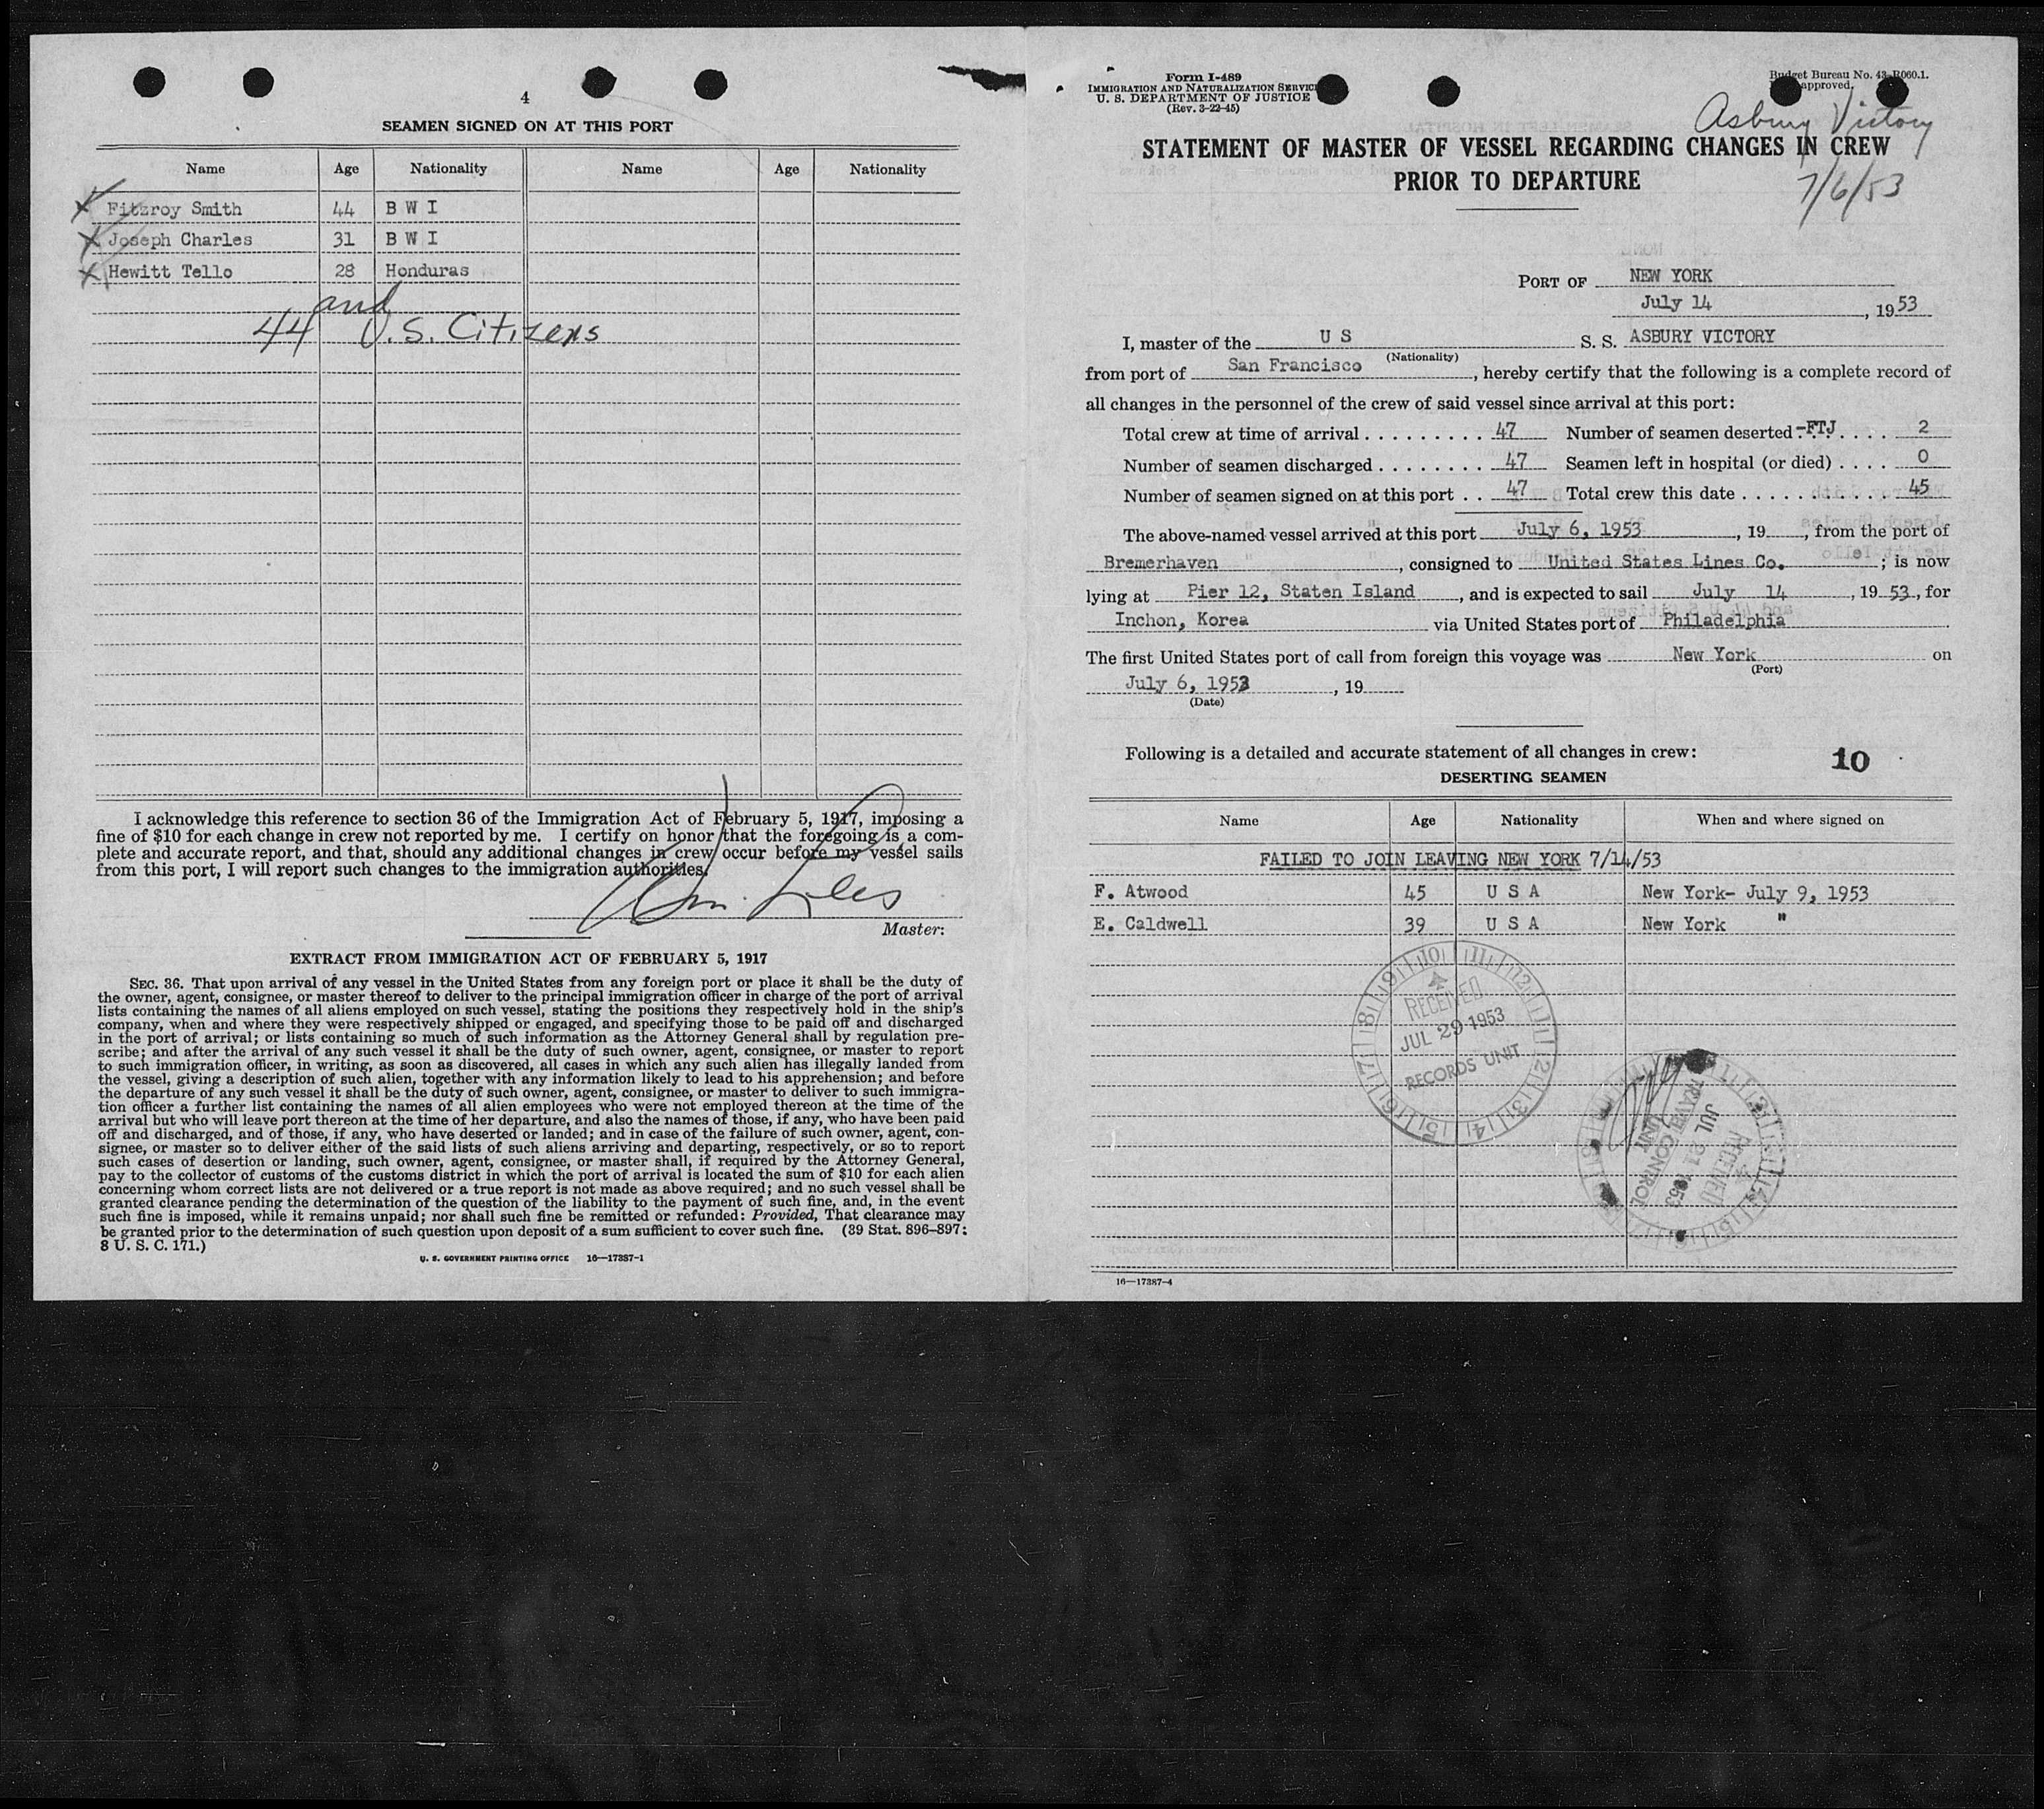 4
SEAMEN SIGNED ON AT THIS PORT
Name Age Nationality Name Age Nationality
Fitzroy Smith 44 B W I
Joseph Charles 31 B W I
Hewitt Tello 28 Honduras
and
44 U.S. Citizens
I acknowledge this reference to section 36 of the Immigration Act of February 5, 1917, imposing a
fine of $10 for each change in crew not reported by me. I certify on honor that the foregoing is a com-
plete and accurate report, and that, should any additional changes in crew occur before my vessel sails
from this port, I will report such changes to the immigration authorities.
Master:
EXTRACT FROM IMMIGRATION ACT OF FEBRUARY 5, 1917
SEC. 36. That upon arrival of any vessel in the United States from any foreign port or place it shall be the duty of
the owner, agent, consignee, or master thereof to deliver to the principal immigration officer in charge of the port of arrival
lists containing the names of all aliens employed on such vessel, stating the positions they respectively hold in the ship's
company, when and where they were respectively shipped or engaged, and specifying those to be paid off and discharged
in the port of arrival; or lists containing so much of such information as the Attorney General shall by regulation pre-
scribe; and after the arrival of any such vessel it shall be the duty of such owner, agent, consignee, or master to report
to such immigration officer, in writing, as soon as discovered, all cases in which any such alien has illegally landed from
the vessel, giving a description of such alien, together with any information likely to lead to his apprehension; and before
the departure of any such vessel it shall be the duty of such owner, agent, consignee, or master to deliver to such immigra-
tion officer a further list containing the names of all alien employees who were not employed thereon at the time of the
arrival but who will leave port thereon at the time of her departure, and also the names of those, if any, who have been paid
off and discharged, and of those, if any, who have deserted or landed; and in case of the failure of such owner, agent, con-
signee, or master so to deliver either of the said lists of such aliens arriving and departing, respectively, or so to report
such cases of desertion or landing, such owner, agent, consignee, or master shall, if required by the Attorney General,
pay to the collector of customs of the customs district in which the port of arrival is located the sum of $10 for each alien
concerning whom correct lists are not delivered or a true report is not made as above required; and no such vessel shall be
granted clearance pending the determination of the question of the liability to the payment of such fine, and, in the event
such fine is imposed, while it remains unpaid; nor shall such fine be remitted or refunded: Provided, That clearance may
be granted prior to the determination of such question upon deposit of a sum sufficient to cover such fine. (39 Stat. 896–897;
8 U. S. C. 171.)
U. S. GOVERNMENT PRINTING OFFICE 16—17387-1
Form I-489
IMMIGRATION AND NATURALIZATION SERVICE
U. S. DEPARTMENT OF JUSTICE
(Rev. 3-22-45)
Budget Bureau No. 43-R060.1.
approved.
Asbury Victory
7/6/53
STATEMENT OF MASTER OF VESSEL REGARDING CHANGES IN CREW
PRIOR TO DEPARTURE
PORT OF NEW YORK
July 14, 1953
I, master of the U S S. S. ASBURY VICTORY
(Nationality)
from port of San Francisco, hereby certify that the following is a complete record of
all changes in the personnel of the crew of said vessel since arrival at this port:
Total crew at time of arrival . . . . . . . . . 47 Number of seamen deserted -FTJ . . . . 2
Number of seamen discharged . . . . . . . . 47 Seamen left in hospital (or died) . . . . 0
Number of seamen signed on at this port . . 47 Total crew this date . . . . . . . . . . . . 45
The above-named vessel arrived at this port July 6, 1953, 19, from the port of
Bremerhaven, consigned to United States Lines Co.; is now
lying at Pier 12, Staten Island, and is expected to sail July 14, 1953, for
Inchon, Korea via United States port of Philadelphia
The first United States port of call from foreign this voyage was New York on
(Port)
July 6, 1953, 19
(Date)
Following is a detailed and accurate statement of all changes in crew:
10
DESERTING SEAMEN
Name Age Nationality When and where signed on
FAILED TO JOIN LEAVING NEW YORK 7/14/53
F. Atwood 45 U S A New York- July 9, 1953
E. Caldwell 39 U S A New York "
RECEIVED
JUL 29 1953
RECORDS UNIT
RECEIVED
JUL 21 1953
TRAVEL CONTROL
UNIT
16—17387-4